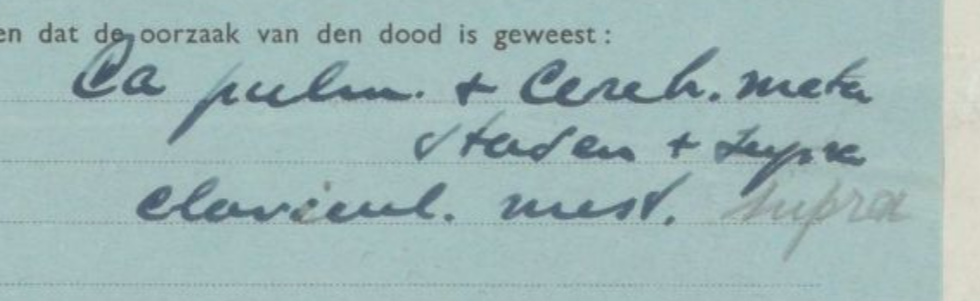 en dat de oorzaak van den dood is geweest:
Ca pulm. + Cereb. meta
staden + supra
clavicul. mest. supra